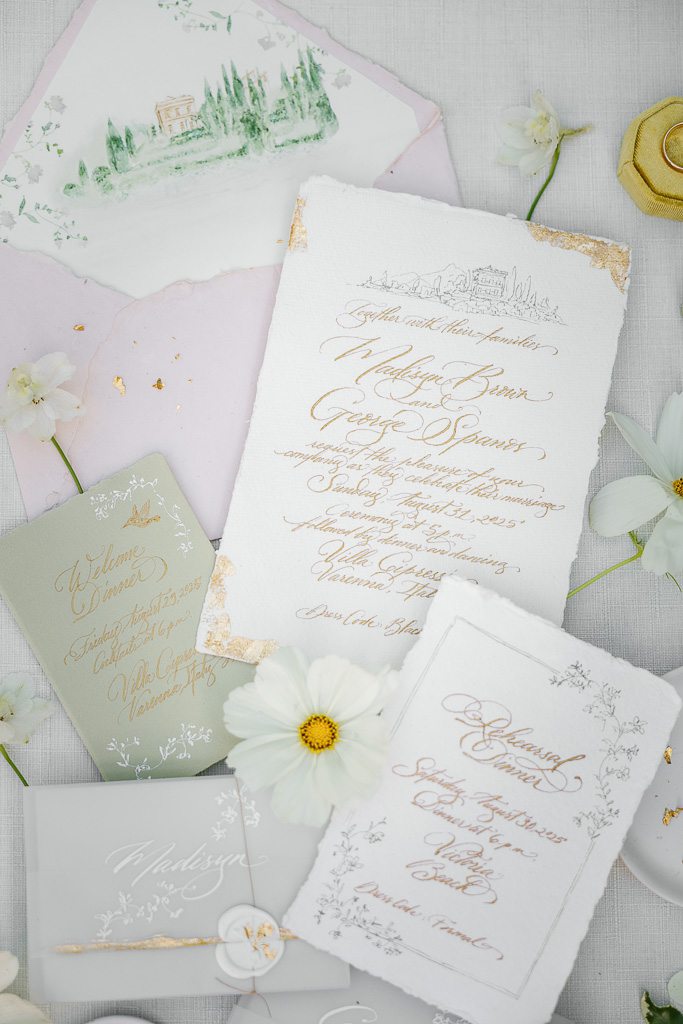 Together with their families
Madisyn Brown
and
George Spanos
request the pleasure of your
company as they celebrate their marriage
Sunday August 31, 2025
Ceremony at 5 p.m
followed by dinner and dancing
Villa Cipressi
Varenna,
Dress Code, Black
Welcome
Dinner
Friday August 29, 2025
Cocktails at 6 p.m
Villa Cipressi
Varenna Italy
Rehearsal
Dinner
Saturday, August 30, 2025
Dinner at 6 p.m
Victoria
Beach
Dress Code, Formal
Madisyn